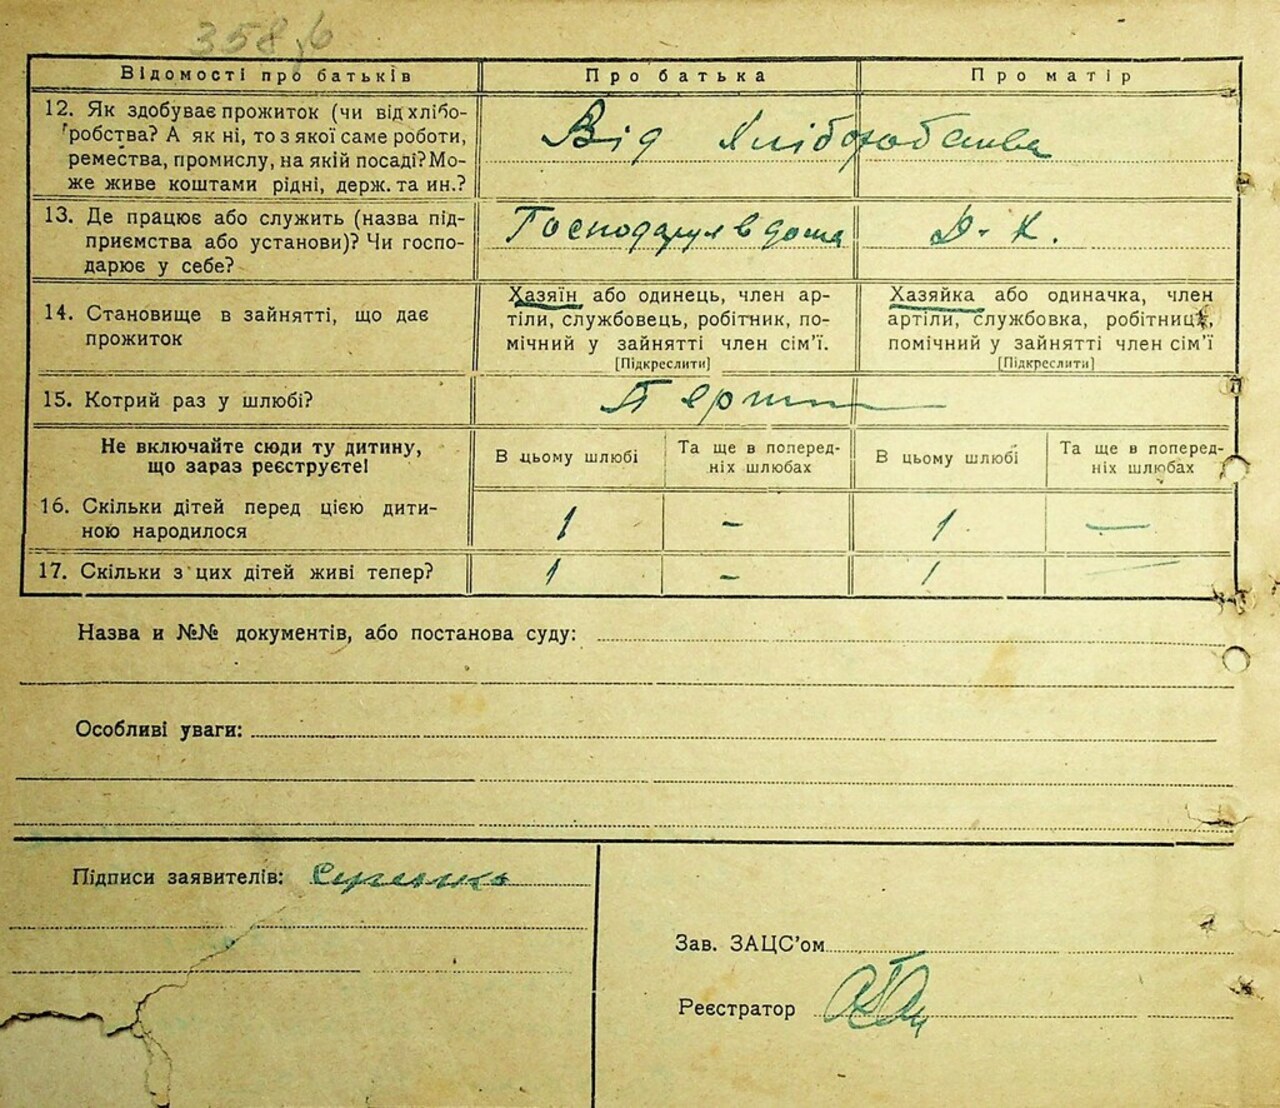 358
Відомості про батьків Про батька Про матір
12. Як здобуває прожиток (чи від хлібо-
робства? А як ні, то з якої саме роботи,
ремества, промислу, на якій посаді? Мо-
же живе коштами рідні, держ. та ин.?
Від Хліборобства
13. Де працює або служить (назва під-
приємства або установи)? Чи госпо-
дарює у себе?
Господарує в дома
Д-К.
14. Становище в зайнятті, що дає
прожиток
Хазяїн або одинець, член ар-
тіли, службовець, робітник, по-
мічний у зайнятті член сім'ї.
[Підкреслити]
Хазяйка або одиначка, член
артіли, службовка, робітниця,
помічний у зайнятті член сім'ї
[Підкреслити]
15. Котрий раз у шлюбі?
Не включайте сюди ту дитину,
що зараз реєструєте!
В цьому шлюбі
Та ще в поперед-
ніх шлюбах
В цьому шлюбі
Та ще в поперед-
ніх шлюбах
16. Скільки дітей перед цією дити-
ною народилося
1 - 1 —
17. Скільки з цих дітей живі тепер? 1 - 1 —
Назва и №№ документів, або постанова суду:
Особливі уваги:
Підписи заявителів:
Зав. ЗАЦС'ом
Реєстратор